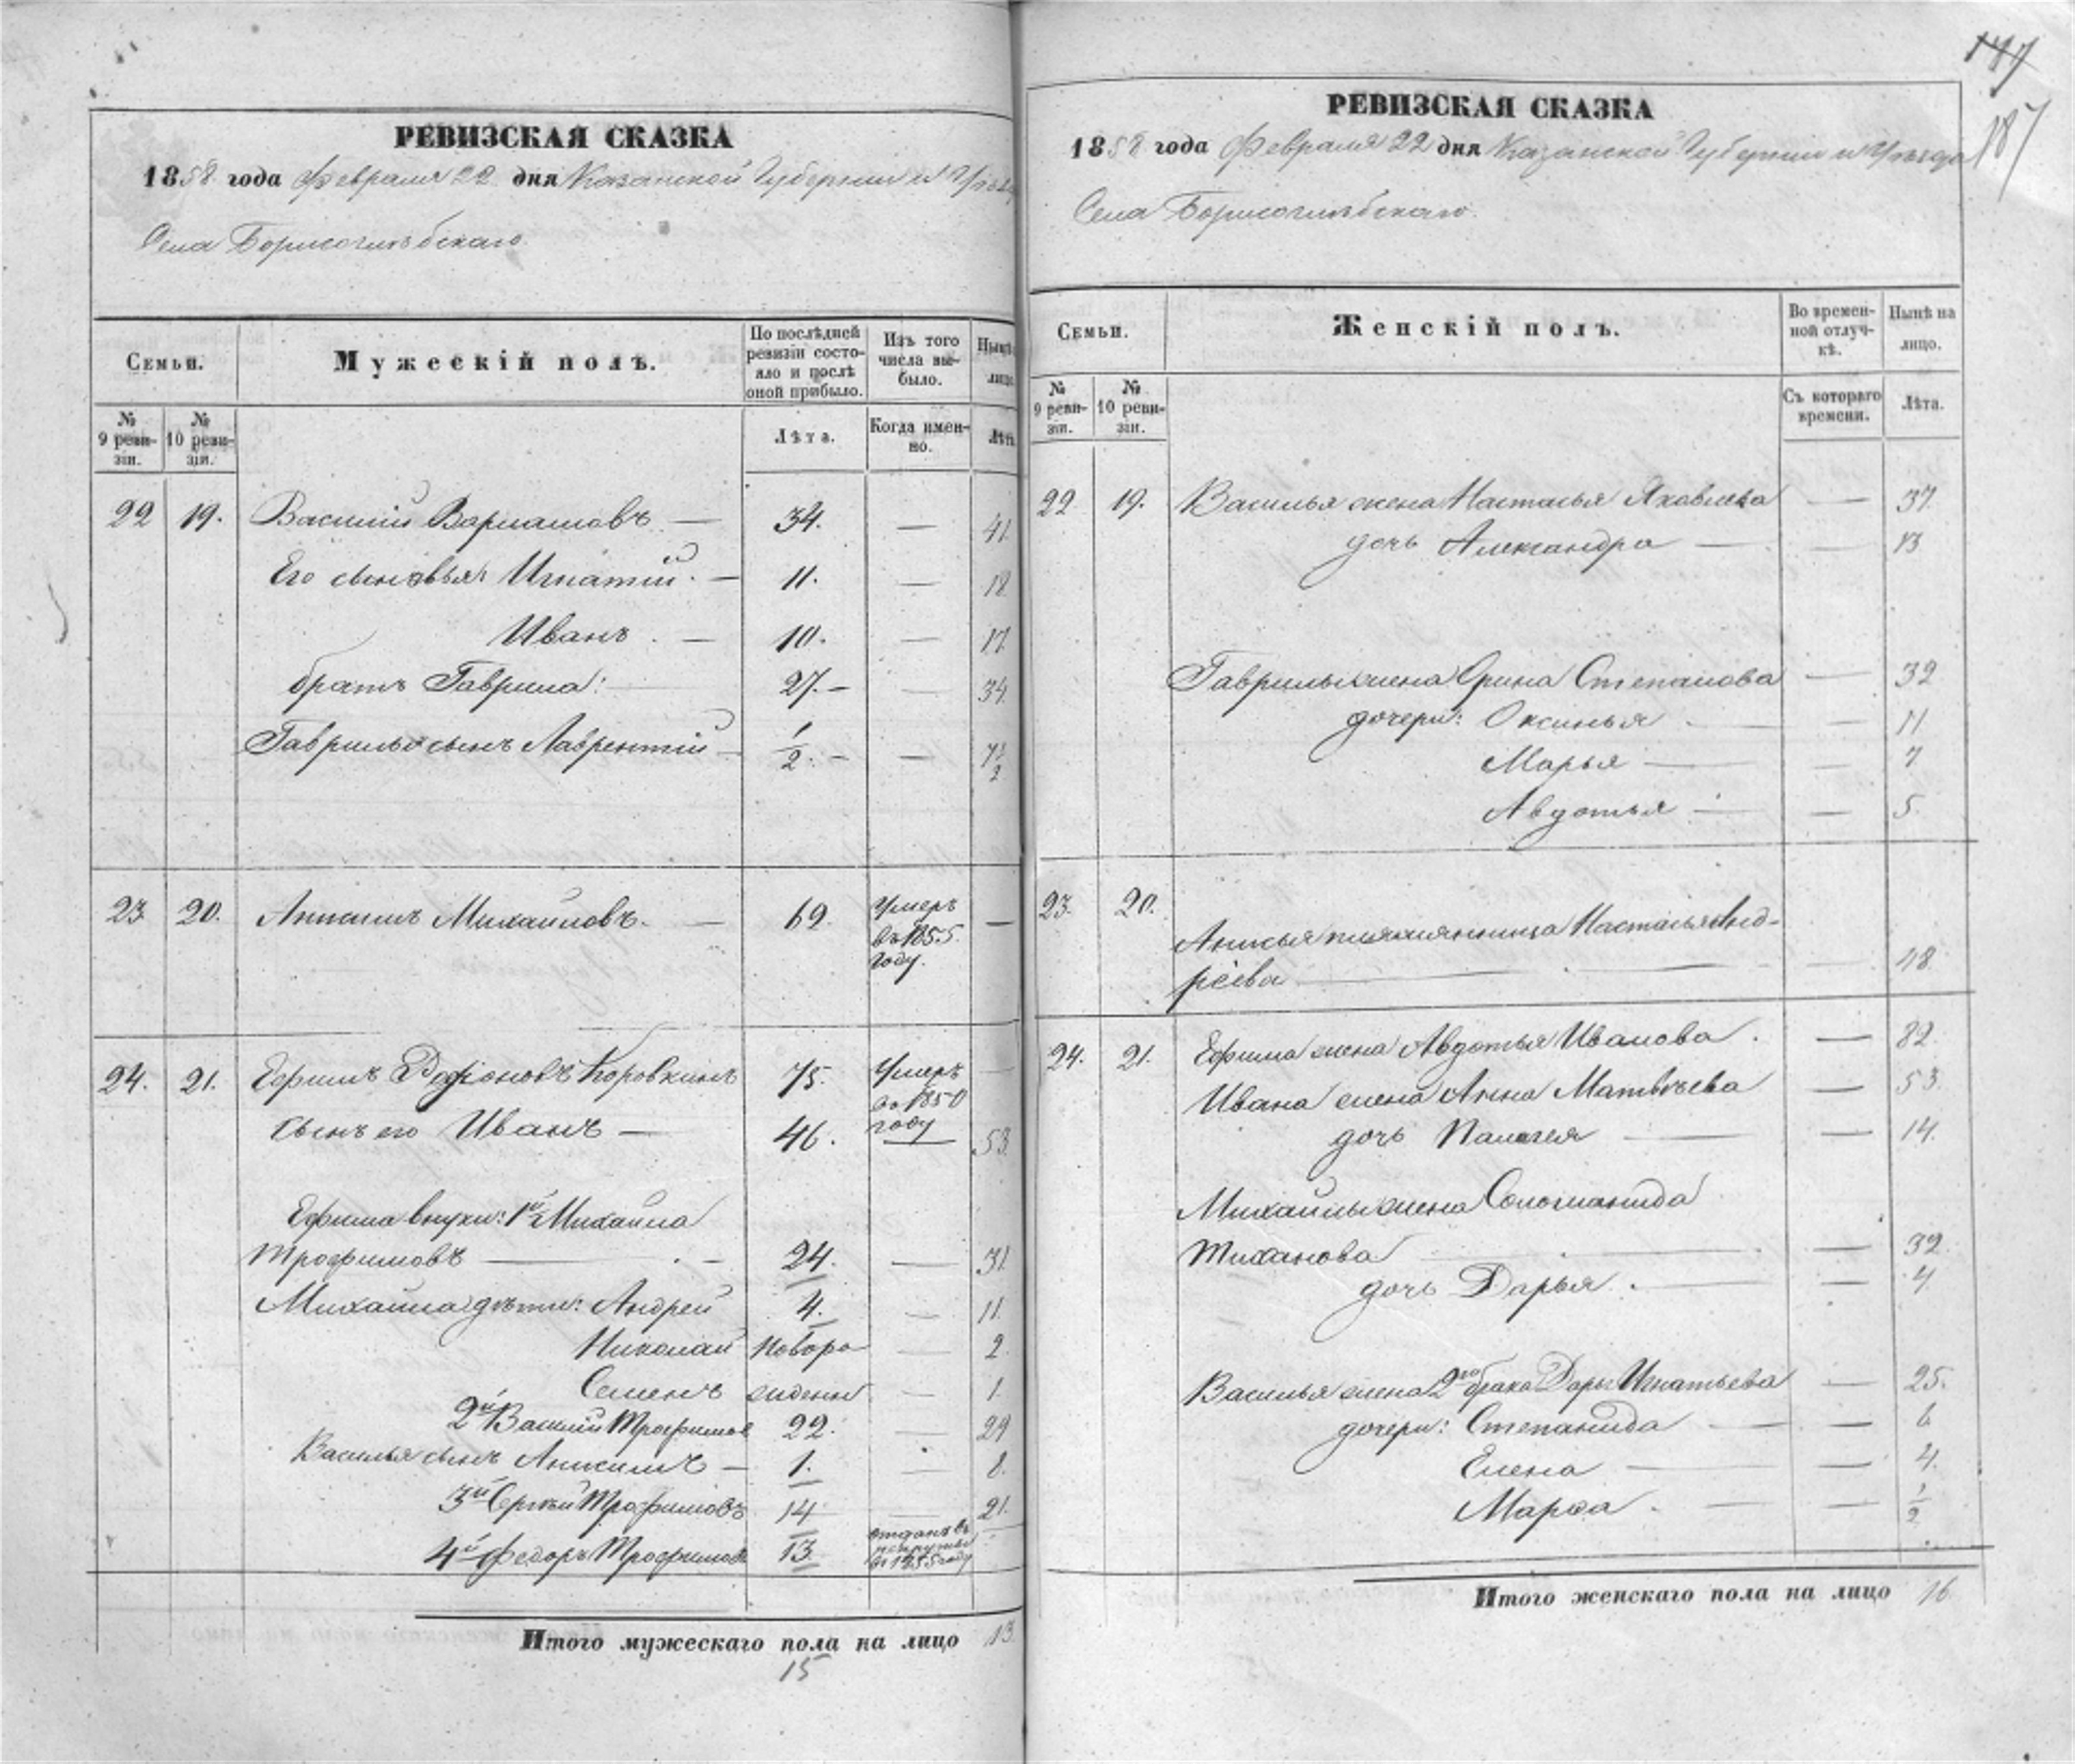 РЕВИЗСКАЯ СКАЗКА
1858 года Февраля 22 дня Казанской Губерніи и Уѣзда
Села Борисоглѣбскаго
Семьи.
Мужескій полъ.
По послѣдней ревизіи состояло и послѣ оной прибыло.
Изъ того числа выбыло.
Нынѣ лицо
№ 9 ревизіи.
№ 10 ревизіи.
Лѣта.
Когда именно.
Лѣта
22 19. Василій Варламовъ — 34. — 41.
Его сыновья: Игнатій. — 11. — 18.
Иванъ. — 10. — 17.
братъ Гаврила: — 27. — — 34.
Гаврилы сынъ Лаврентій — 1/2. — — 7 1/2
23 20. Анисимъ Михайловъ. — 69. Умеръ въ 1855. году. —
24. 21. Ефимъ Родіоновъ Коровкинъ 75. Умеръ въ 1850 году —
сынъ его Иванъ — 46. — 53.
Ефима внуки: 1й Михайла
Трофимовъ — 24. — 31.
Михайла дѣти: Андрей 4. — 11.
Николай новоро — 2.
Семенъ жденны — 1.
2й Василій Трофимов 22. — 29
Василья сынъ Анисимъ — 1. — 8.
3й Сергѣй Трофимовъ 14 — 21.
4й Федоръ Трофимовъ 13. отданъ въ рекруты въ 1855 году
Итого мужескаго пола на лицо 13.
15
187
РЕВИЗСКАЯ СКАЗКА
1858 года Февраля 22 дня Казанской Губерніи и Уѣзда
Села Борисоглѣбскаго.
Семьи.
Женскій полъ.
Во временной отлучкѣ.
Нынѣ на лицо.
№ 9 ревизіи.
№ 10 ревизіи.
Съ котораго времени.
Лѣта.
22 19. Василья жена Настасья Яковлева — 37.
дочь Александра — — 13
Гаврилы жена Орина Степанова — 32
дочери: Оксинья — — 11
Марья — — 7
Авдотья — — 5.
23. 20. Анисья племянница Настасья Анд-
реева — — 18
24. 21. Ефима жена Авдотья Иванова. — 82.
Ивана жена Анна Матвѣева — 53.
дочь Палагея — — 14.
Михайлы жена Соломанида
Тиханова — — 32.
дочь Дарья. — — 4.
Василья жена 2го брака Дарья Игнатьева — 25.
дочери: Степанида — — 6
Елена — — 4.
Марѳа. — — 1/2
Итого женскаго пола на лицо 16